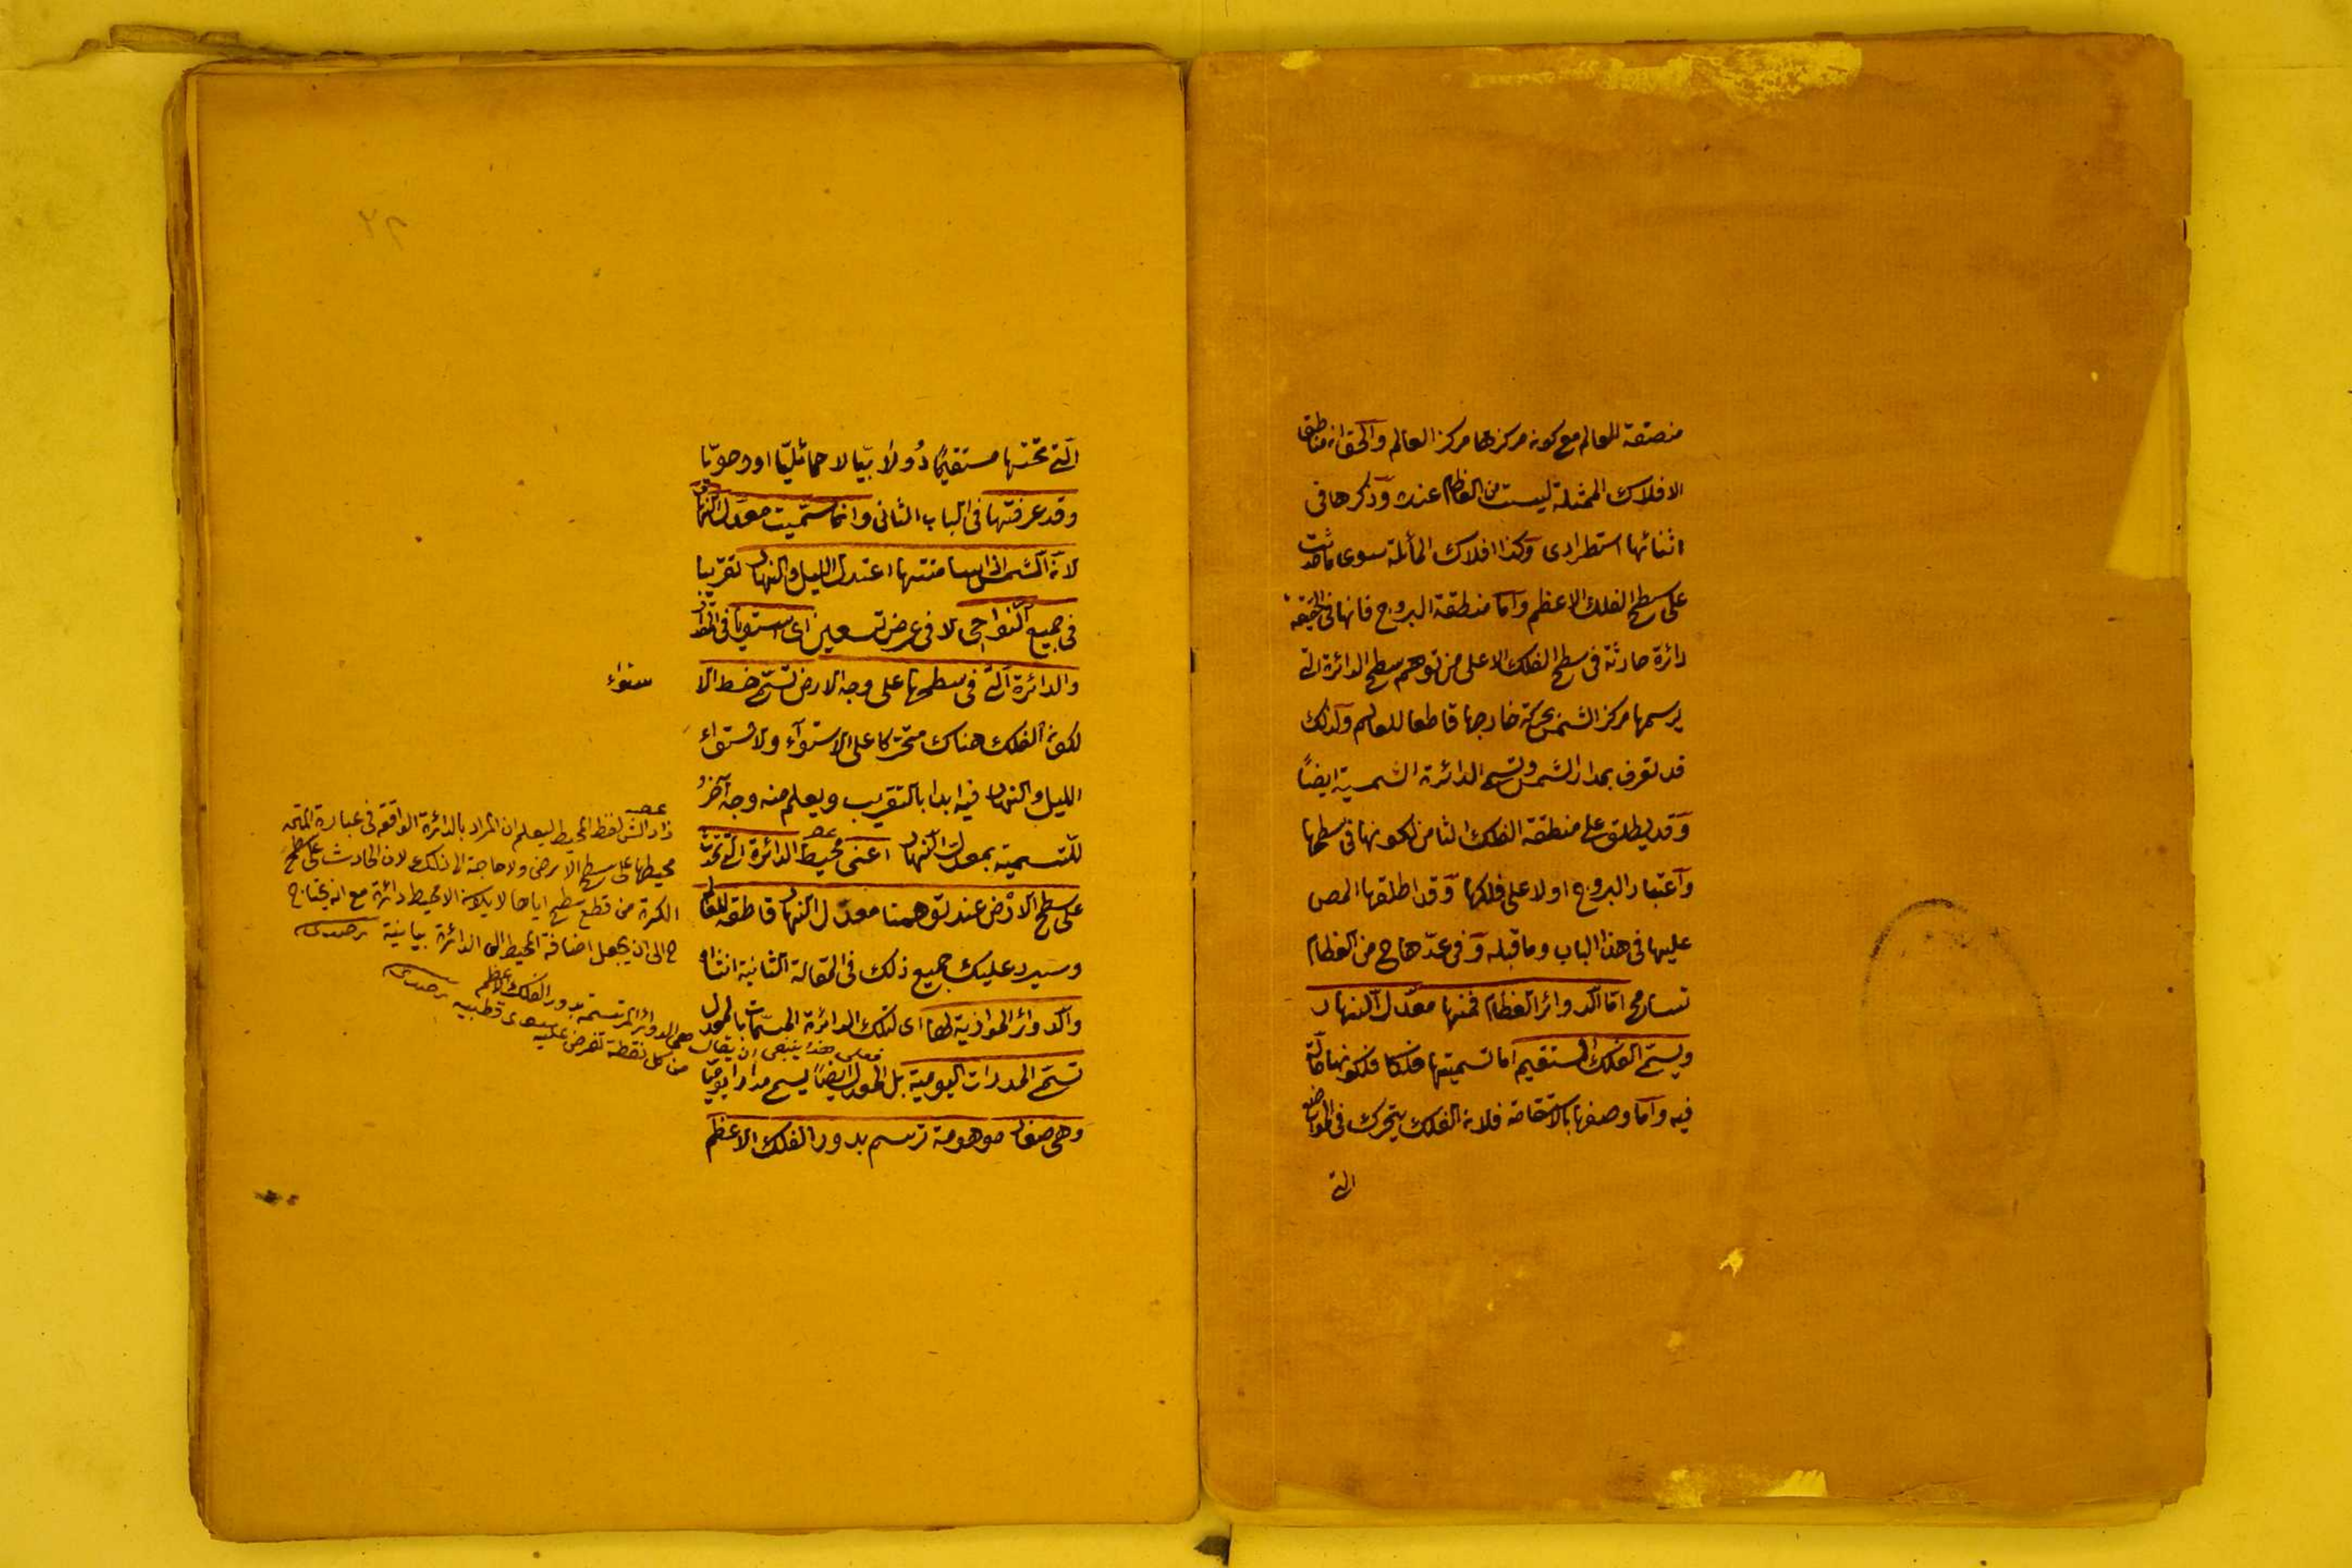 منصفة للعالم مع كونه مركزها مركز العالم والحق انه مناطق
الافلاك الممثلة ليست من العظام عنده وذكرها فى
اثنائها استطرادى وكذا افلاك المائلة سوى ما حدثت
على سطح الفلك الاعظم واما منطقة البروج فانها فى الحقيقة
دائرة حادثة فى سطح الفلك الاعلى من توهم سطح الدائرة التى
يرسمها مركز الشمس بحركة خارجها قاطعا للعالم ولذلك
قد تعرف بمدار الشمس وتسمى الدائرة الشمسية ايضًا
وقد يطلق على منطقة الفلك الثامن لكونها فى سطحها
واعتبار البروج اولا على فلكها وقد اطلقها المص
عليها فى هذا الباب وما قبله وفى عدّها ح من العظام
تسامح امّا الدوائر العظام فمنها معدّل النهار
ويسمّى الفلك المستقيم اما تسميتها فلكا فلكونها حالّة
فيه واما وصفها بالاستقامة فلانه الفلك يتحرك فى المواضع
التى
الّتى تحتها مستقيمًا دُولابيّا لا حمائليّا او رحويّا
وقد عرفتها فى الباب الثانى وانما سمّيت معدّل النهار
لانه الشمس اذا سامتتها اعتدل الليل والنهار تقريبا
فى جميع النواحى لا فى عرض تسعين اى استويا فى المقدار
والدائرة التى فى سطحها على وجه الارض تسمّى خط الا
ستواء
لكون الفلك هناك متحركا على الاستواء ولاستواء
الليل والنهار فيه ابدا بالتقريب ويعلم منه وجه آخر
للتسمية بمعدل النهار اعنى محيط الدائرة التى تحدث
على سطح الارض عند توهمنا معدّل النهار قاطعة للعالم
وسيرد عليك جميع ذلك فى المقالة الثانية انشاء
والدوائر الموازية لها اى لتلك الدائرة المسمّات بالمعدل
تسمّى المدارات اليومية بل المعدل ايضًا يسمى مدارا يوميّا
وهى صغار موهومة ترسم بدور الفلك الاعظم
زاد الش لفظ المحيط ليعلم ان المراد بالدائرة الواقعة فى عبارة المتن
محيطها على سطح الارض ولا حاجة الى ذلك لان الحادث على سطح
الكرة من قطع سطح اياها لا يكون الا محيط دائرة مع انه يحتاج
ح الى ان يجعل اضافة المحيط الى الدائرة بيانية
هى الدوائر المرتسمة بدور الفلك الاعظم
من كل نقطة تفرض عليه سوى قطبيه